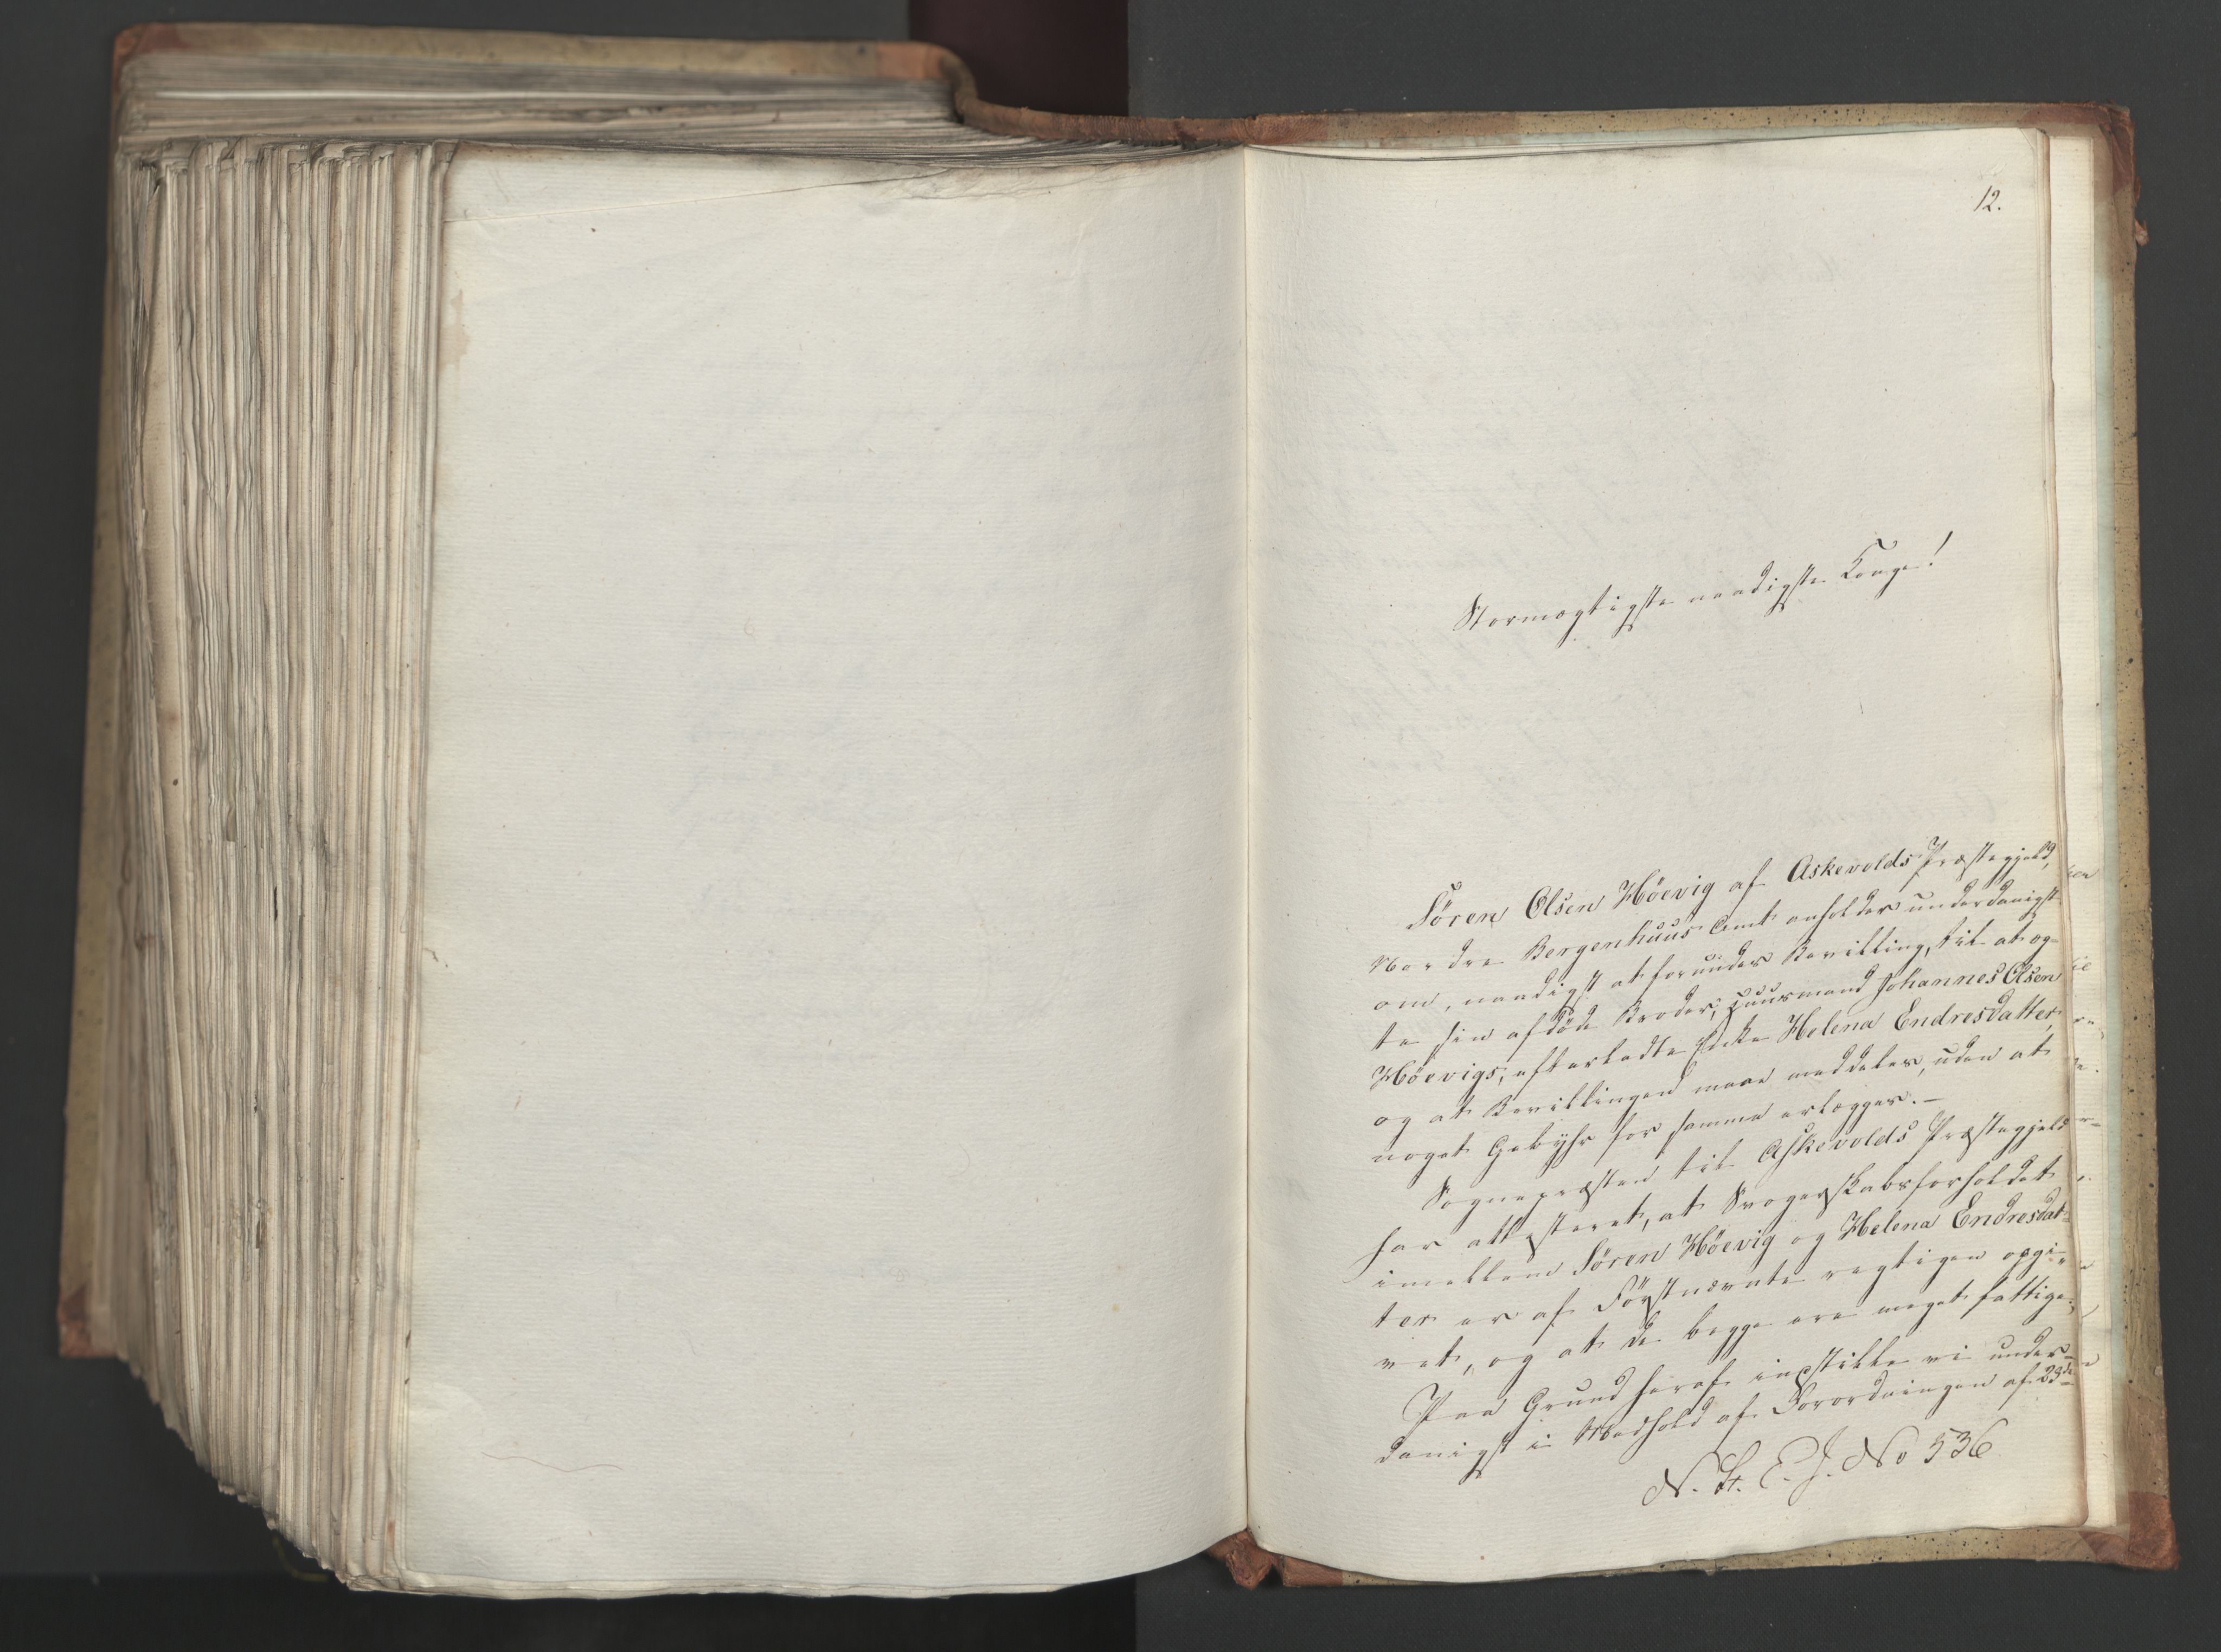 12.
Stormægtigste naadigste Konge!
Sören Olsen Höevig af Askevolds Præstegjeld,
Nordre Bergenhuus Amt anholder underdanigst
om, naadigst at forundes Bevilling, til at æg-
te sin afdöde Broder, Huusmand Johannes Olsen
Höevigs, efterladte Enke Helena Endresdatter,
og at Bevillingen maae meddeles, uden at
noget Gebyhr for samme erlægges.-
Sognepræsten til Askevolds Præstegjeld
har attesteret, at Svogerskabsforholdet
imellem Sören Höevig og Helena Endresdat-
ter er af Förstnævnte rigtigen opgi-
vet, og at de begge ere meget fattige.
Paa Grund heraf indstille vi under-
danigst i Medhold af Forordningen af 23de
N. St. E. J. No 536